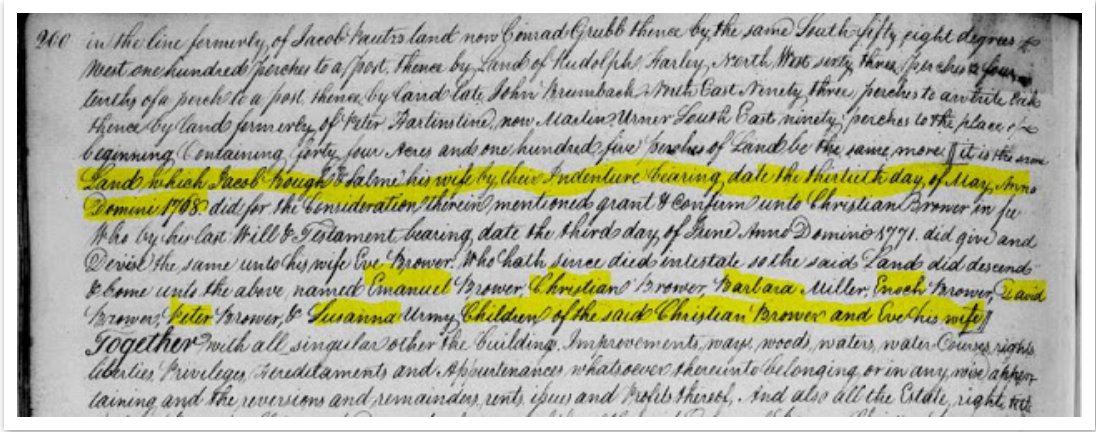 200 in the line formerly of Jacob Kautzs land now Conrad Grubb thence by the same South fifty eight degrees
West one hundred perches to a post, thence by Land of Rudolph Harley North West sixty three perches & four
tenths of a perch to a post, thence by land late John Brumback North East Ninety three, perches to a white Oak
thence by land formerly of Peter Hartinstine, now Martin Urner South East ninety perches to the place of
beginning Containing forty four Acres and one hundred five perches of Land be the same more it is the same
Land which Jacob Bough & Salme his wife by their Indenture bearing date the thirtieth day of May Anno
Domini 1768 did for the Consideration therein mentioned grant & confirm unto Christian Brower in fee
Who by his last Will & Testament bearing date the third day of June Anno Domini 1771. did give and
Devise the same unto his wife Eve Brower. Who hath since died intestate so the said Land did descend
& come unto the above named Emanuel Brower, Christian Brower, Barbara Miller, Enoch Brower, David
Brower, Peter Brower, & Susanna Urmy Children of the said Christian Brower and Eve his wife
Together with all singular other the buildings, Improvements, ways, woods, waters, water Courses, rights
liberties, Privileges, Hereditaments and Appurtenances whatsoever thereunto belonging or in any wise apper-
taining and the reversions and remainders, rents, issues and Profits thereof, And also all the Estate, right, title